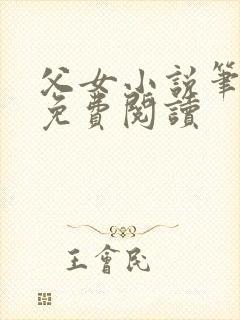 父女小說筆
免費閱讀
王會民